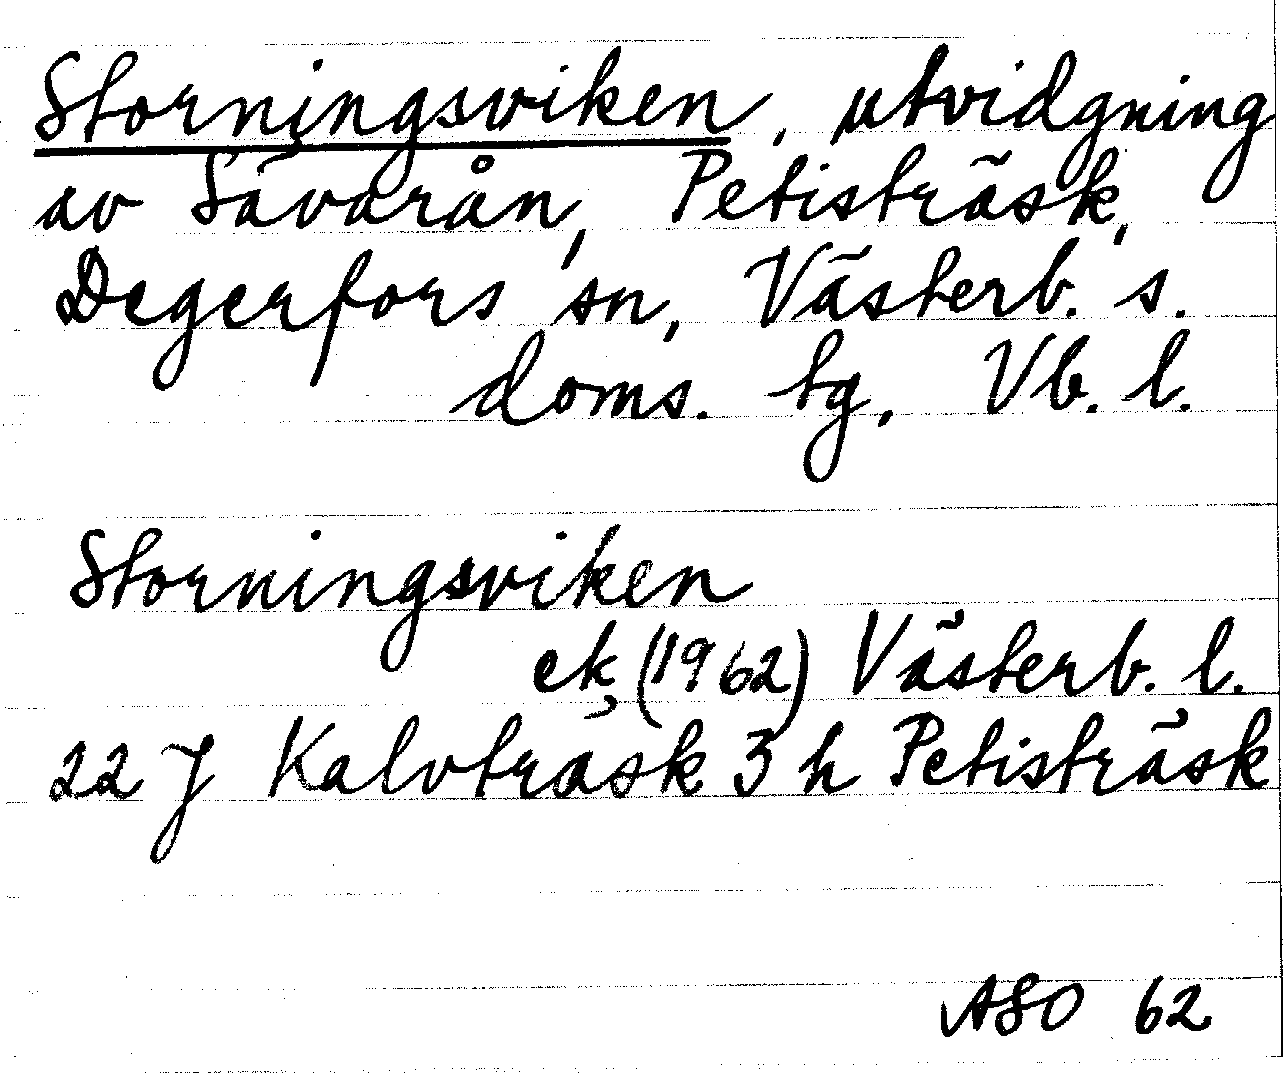 Storningsviken, utvidgning
av Sävarån, Petisträsk,
Degerfors sn, Västerb. s.
doms. tg, Vb. l.
Storningsviken
ek (1962) Västerb. l.
22 J Kalvträsk 3 h Petisträsk
ASO 62